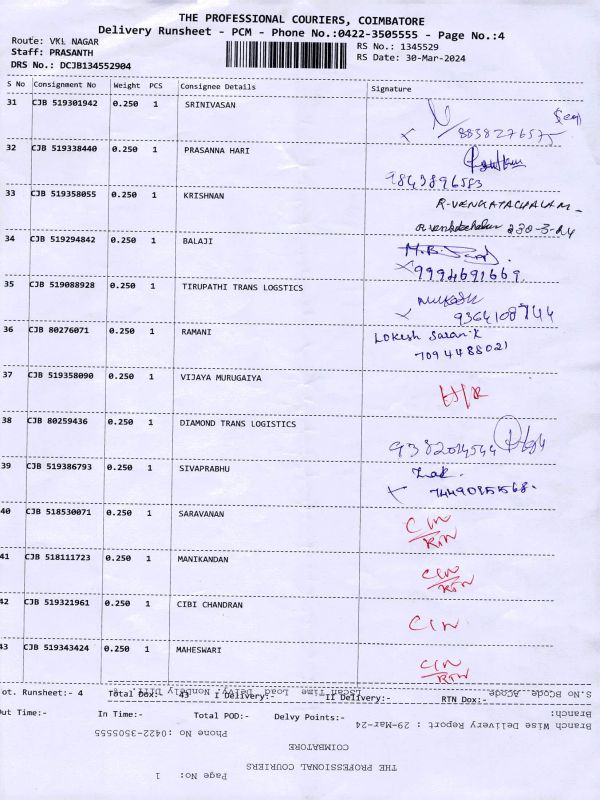 THE PROFESSIONAL COURIERS, COIMBATORE
Delivery Runsheet - PCM - Phone No.:0422-3505555 - Page No.:4
Route: VKL NAGAR
RS No.: 1345529
Staff: PRASANTH
RS Date: 30-Mar-2024
DRS No.: DCJB134552904
S No Consignment No Weight PCS Consignee Details Signature
31 CJB 519301942 0.250 1 SRINIVASAN
8838276575
32 CJB 519338440 0.250 1 PRASANNA HARI
9843896583
33 CJB 519358055 0.250 1 KRISHNAN R-VENGATACHALAM-
34 CJB 519294842 0.250 1 BALAJI
9994691669.
35 CJB 519088928 0.250 1 TIRUPATHI TRANS LOGSTICS
9364108744
36 CJB 80276071 0.250 1 RAMANI Lokesh Saran.K
7094488021
37 CJB 519358090 0.250 1 VIJAYA MURUGAIYA
38 CJB 80259436 0.250 1 DIAMOND TRANS LOGISTICS
39 CJB 519386793 0.250 1 SIVAPRABHU
40 CJB 518530071 0.250 1 SARAVANAN CIN
RTN
41 CJB 518111723 0.250 1 MANIKANDAN CIN
RTN
42 CJB 519321961 0.250 1 CIBI CHANDRAN CIN
43 CJB 519343424 0.250 1 MAHESWARI CIN
RTN
ot. Runsheet:- 4 Total Dox:- 43 I Delivery:- II Delivery:- RTN Dox:-
S.No BCode ACode
ut Time:- In Time:- Total POD:- Delvy Points:-
Branch:
Branch Wise Delivery Report : 29-Mar-24
Phone No :0422-3505555
COIMBATORE
THE PROFESSIONAL COURIERS
Page No: 1